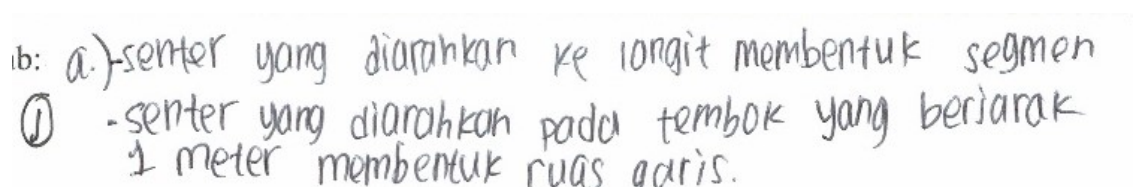 ab: a.) -senter yang diarahkan ke langit membentuk segmen
① -senter yang diarahkan pada tembok yang berjarak
1 meter membentuk ruas garis.